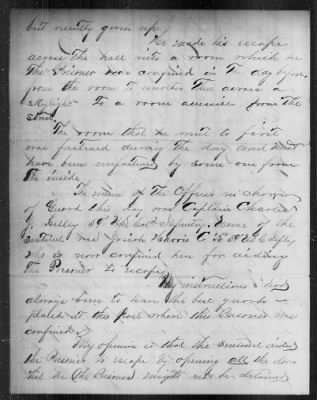 but recently given up.
He made his escape
across the hall into a room which he
The Prisoner was confined in the day before,
from the room to another then across a
skylight to a room accessible from the
street.
The room that he went to first
was fastened during the day and must
have been unfastened by some one from
the inside.
The name of the Officer in charge
of Guard this day was Captain Charles
Inf. Name of the
Sentinel was Josiah Co
who is now confined here for aiding
the Prisoner to escape.
My instructions had
always been to have the best guards
placed at the post when this Prisoner was
confined.
My opinion is that the Sentinel aided
the Prisoner to escape by opening all the doors
that he (the Prisoner) might not be detained